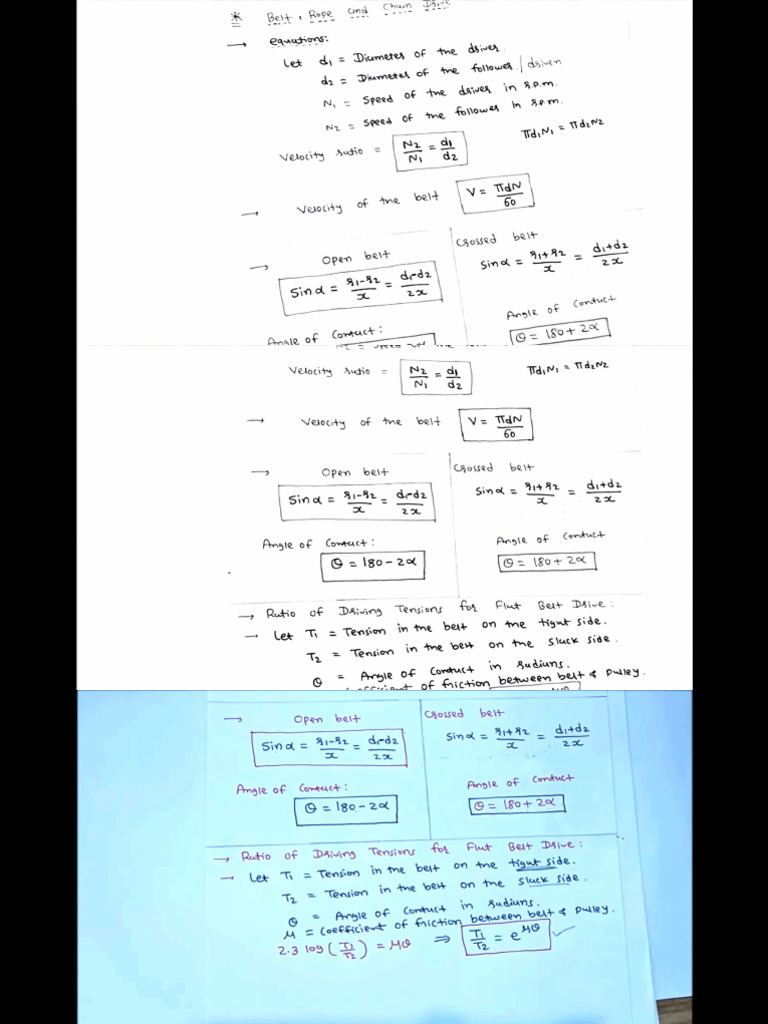 * Belt, Rope and Chain Drive
→ equations:
Let d1 = Diameter of the driver.
d2 = Diameter of the follower / driven
N1 = Speed of the driver in r.p.m.
N2 = Speed of the follower in r.p.m.
Velocity ratio = N2/N1 = d1/d2 πd1N1 = πd2N2
→ Velocity of the belt V = πdN/60
→ Open belt
Sinα = r1-r2/x = d1-d2/2x
Angle of Contact:
Crossed belt
Sinα = r1+r2/x = d1+d2/2x
Angle of Contact
θ = 180 + 2α
Velocity ratio = N2/N1 = d1/d2 πd1N1 = πd2N2
→ Velocity of the belt V = πdN/60
→ Open belt
Sinα = r1-r2/x = d1-d2/2x
Angle of Contact:
θ = 180 - 2α
Crossed belt
Sinα = r1+r2/x = d1+d2/2x
Angle of Contact
θ = 180 + 2α
→ Ratio of Driving Tensions for Flat Belt Drive:
→ Let T1 = Tension in the belt on the tight side.
T2 = Tension in the belt on the slack side.
θ = Angle of Contact in radians.
of friction between belt & pulley.
→ Open belt
Sinα = r1-r2/x = d1-d2/2x
Angle of Contact:
θ = 180 - 2α
Crossed belt
Sinα = r1+r2/x = d1+d2/2x
Angle of Contact
θ = 180 + 2α
→ Ratio of Driving Tensions for Flat Belt Drive:
→ Let T1 = Tension in the belt on the tight side.
T2 = Tension in the belt on the slack side.
θ = Angle of Contact in radians.
μ = Coefficient of friction between belt & pulley.
2.3 log (T1/T2) = μθ ⇒ T1/T2 = e^μθ